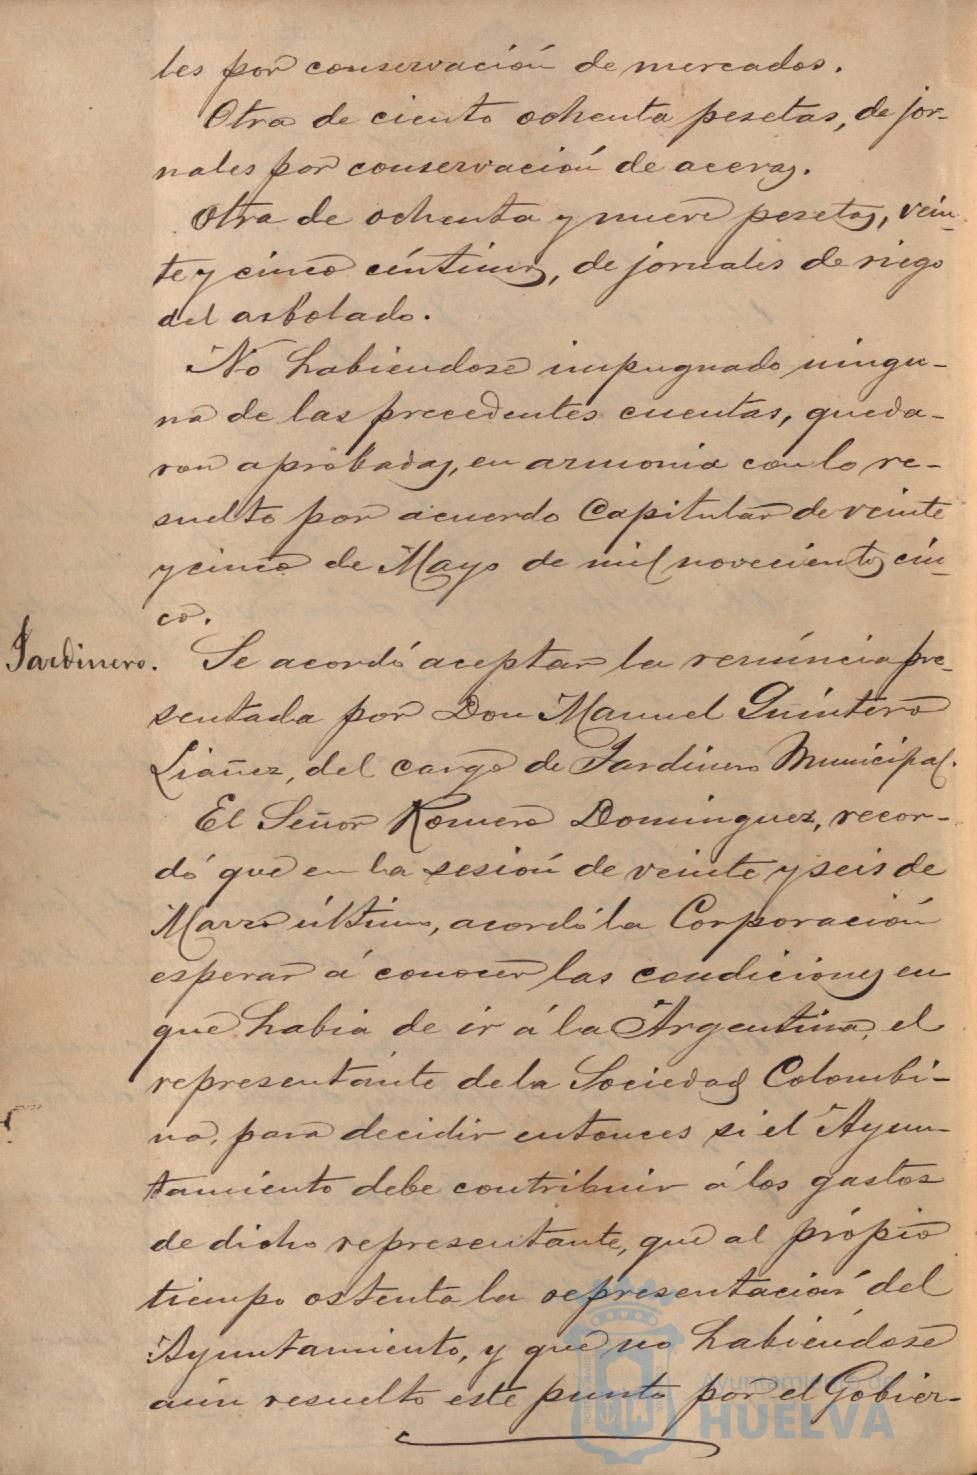 les por conservación de mercados.
Otra de ciento ochenta pesetas, de jor-
nales por conservación de aceras.
Otra de ochenta y nueve pesetas, vein-
te y cinco céntimos, de jornales de riego
del arbolado.
No habiendose impugnado ningu-
na de las precedentes cuentas, queda-
ron aprobadas, en armonia con lo re-
suelto por acuerdo Capitular de veinte
y cinco de Mayo de mil novecientos cin-
co.
Jardinero. Se acordó aceptar la renúncia pre-
sentada por Don Manuel Quintero
Liañez, del cargo de Jardinero Municipal.
El Señor Romero Dominguez, recor-
dó que en la sesión de veinte y seis de
Marzo último, acordó la Corporación
esperar á conocer las condiciones en
que habia de ir á la Argentina, el
representante de la Sociedad Colombi-
na, para decidir entonces si el Ayun-
tamiento debe contribuir á los gastos
de dicho representante, que al própio
tiempo ostenta la representación del
Ayuntamiento, y que no habiéndose
aún resuelto este punto por el Gobier-
Ayuntamiento de
HUELVA